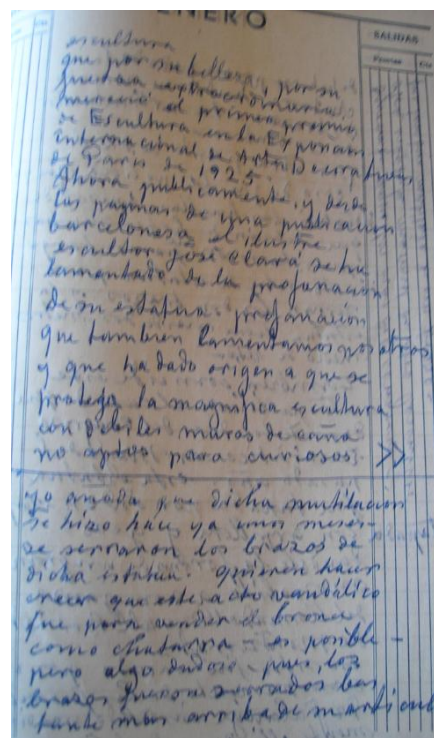 ENERO
SALIDAS
Pesetas
escultura
que por su belleza, por su
fuerza extraordinaria,
mereció el primer premio
de Escultura en la Exposición
internacional de Artes Decorativas
de París de 1925.
Ahora, publicamente, y desde
las paginas de una publicación
barcelonesa el ilustre
escultor José Clará se ha
lamentado de la profanación
de su estatua. profanación
que tambien lamentamos nosotros
y que ha dado origen a que se
proteja la magnifica escultura
con débiles muros de caña
no aptos para curiosos. >>
Yo añado que dicha mutilación
se hizo hace ya unos meses
se serraron los brazos de
dicha estatua. Quieren hacer
creer que este acto vandálico
fue para vender el bronce
como chatarra - es posible -
pero algo dudoso pues, los
brazos fueron serrados bas
tante mas arriba de su articul